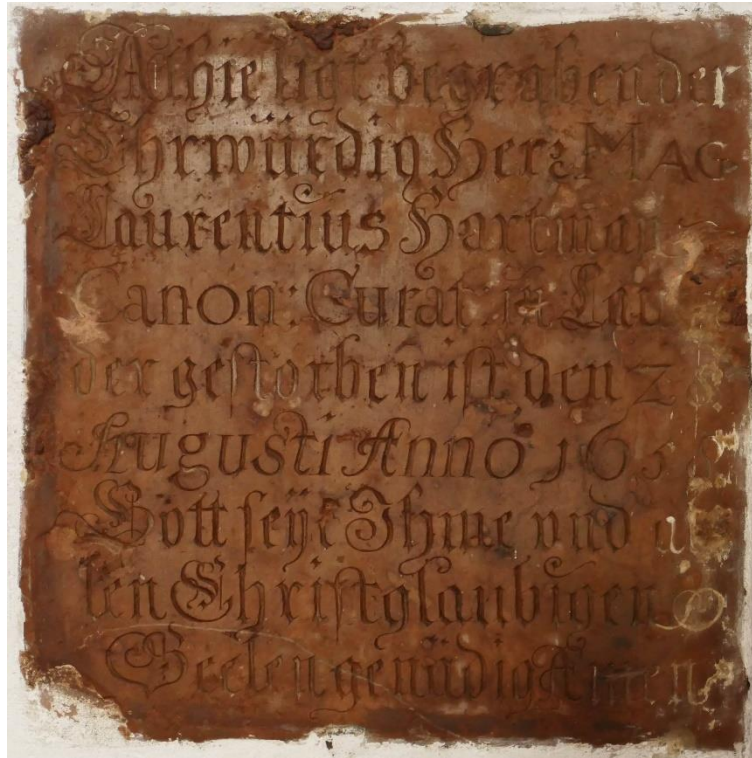 Alhie ligt begraben der
Ehrwürdig Herz MAG
Laurentius Hartman
Canon: Curat: in
der gestorben ist den
Augusti Anno
Gott seye Ihme und al
len Christglaubigen
Seelen genüdig Amen